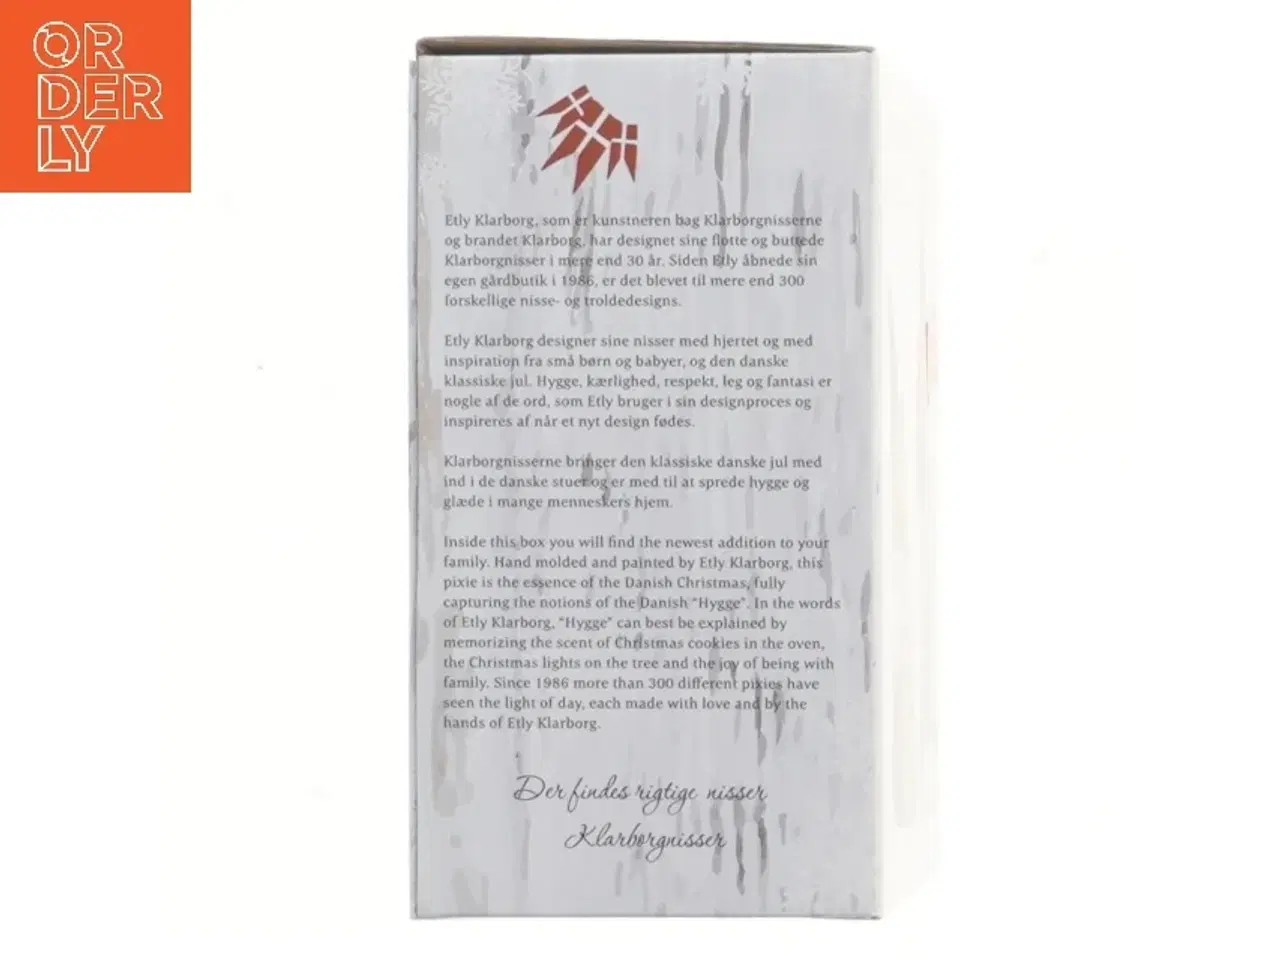 ORDERLY
Etly Klarborg, som er kunstneren bag Klarborgnisserne
og brandet Klarborg, har designet sine flotte og buttede
Klarborgnisser i mere end 30 år. Siden Etly åbnede sin
egen gårdbutik i 1986, er det blevet til mere end 300
forskellige nisse- og troldedesigns.
Etly Klarborg designer sine nisser med hjertet og med
inspiration fra små børn og babyer, og den danske
klassiske jul. Hygge, kærlighed, respekt, leg og fantasi er
nogle af de ord, som Etly bruger i sin designproces og
inspireres af når et nyt design fødes.
Klarborgnisserne bringer den klassiske danske jul med
ind i de danske stuer og er med til at sprede hygge og
glæde i mange menneskers hjem.
Inside this box you will find the newest addition to your
family. Hand molded and painted by Etly Klarborg, this
pixie is the essence of the Danish Christmas, fully
capturing the notions of the Danish "Hygge". In the words
of Etly Klarborg, "Hygge" can best be explained by
memorizing the scent of Christmas cookies in the oven,
the Christmas lights on the tree and the joy of being with
family. Since 1986 more than 300 different pixies have
seen the light of day, each made with love and by the
hands of Etly Klarborg.
Der findes rigtige nisser
Klarborgnisser